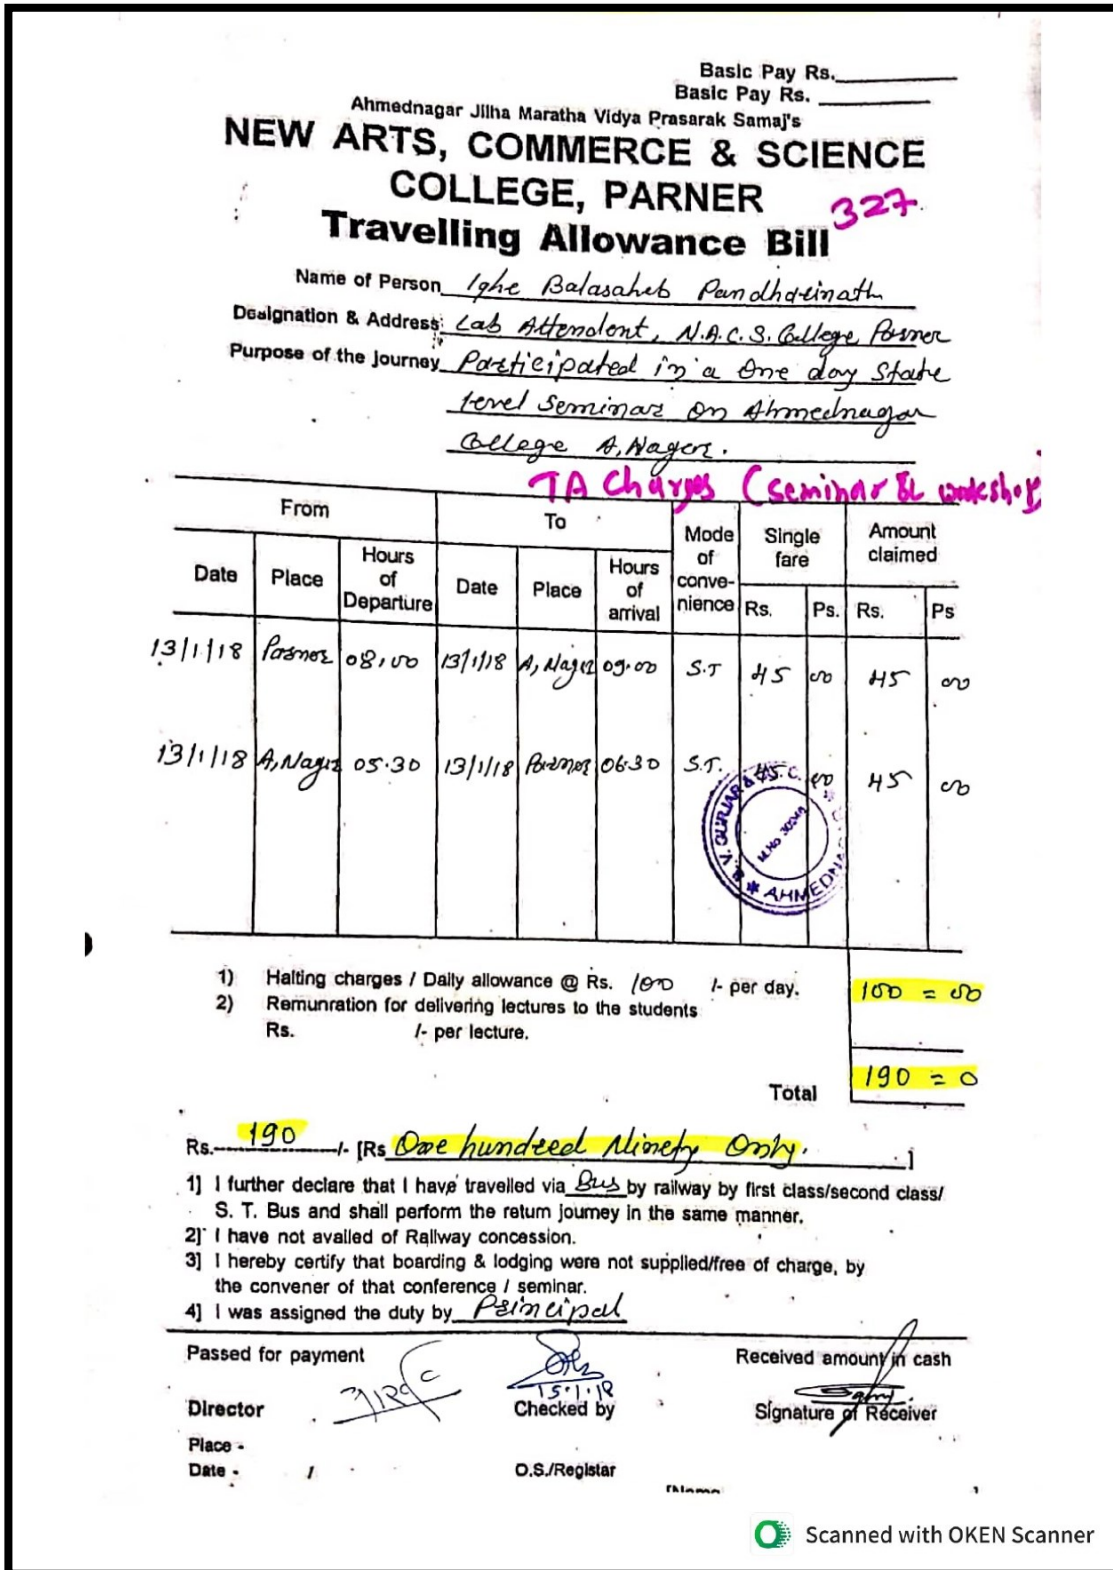 Basic Pay Rs.
Basic Pay Rs.
Ahmednagar Jilha Maratha Vidya Prasarak Samaj's
NEW ARTS, COMMERCE & SCIENCE
COLLEGE, PARNER
327
Travelling Allowance Bill
Name of Person Ighe Balasaheb Pandharinath
Designation & Address: Lab Attendent, N.A.C.S. College Parner
Purpose of the Journey Participated in a One day State
level Seminar on Ahmednagar
College A, Nager.
TA Charges (seminar & workshop)
From To Mode of conve-nience Single fare Amount claimed
Date Place Hours of Departure Date Place Hours of arrival Rs. Ps. Rs. Ps
13/1/18 Parner 08.00 13/1/18 A, Nager 09.00 S.T 45 00 45 00
13/1/18 A, Nager 05.30 13/1/18 Parner 06.30 S.T. 45 00 45 00
AHMEDNAGAR
1) Halting charges / Daily allowance @ Rs. 100 /- per day. 100 = 00
2) Remunration for delivering lectures to the students
Rs. /- per lecture.
Total 190 = 0
Rs. 190 /- [Rs One hundred Ninety Only. ]
1] I further declare that I have travelled via Bus by railway by first class/second class/
S. T. Bus and shall perform the return journey in the same manner.
2] I have not availed of Railway concession.
3] I hereby certify that boarding & lodging were not supplied/free of charge, by
the convener of that conference / seminar.
4] I was assigned the duty by Principal
Passed for payment Received amount in cash
15.1.18
Director Checked by Signature of Receiver
Place -
Date - / O.S./Registar
[Name ]
Scanned with OKEN Scanner